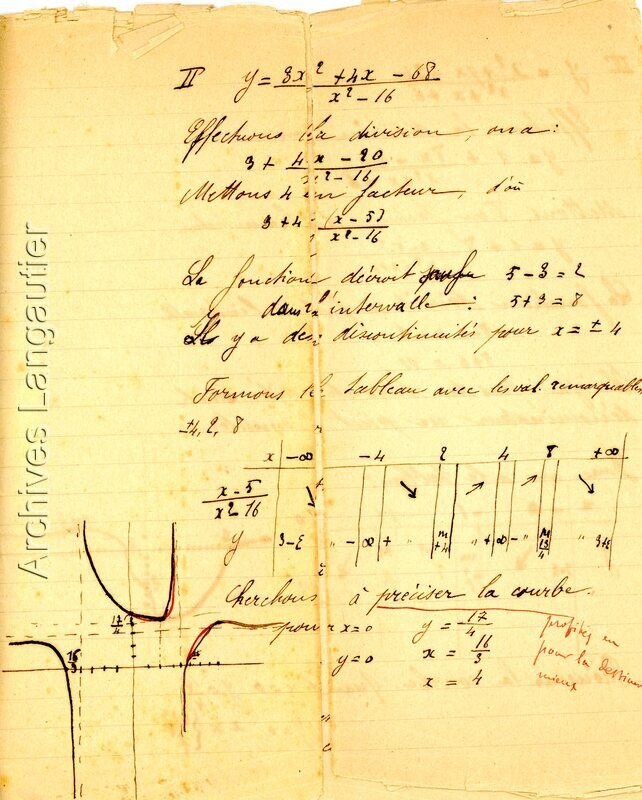 II y = 3x² + 4x - 68
x² - 16
Effectuons la division, on a:
3 + 4x - 20
x² - 16
Mettons 4 en facteur, d'où
3 + 4 (x - 5)
x² - 16
La fonction décroit 5 - 3 = 2
dans l'intervalle: 5 + 3 = 8
Il y a des discontinuités pour x = ± 4
Formons le tableau avec les val. remarquables
±4, 2, 8
x -∞ -4 2 4 8 +∞
x - 5
x² - 16
↘ ↘ ↗ ↗ ↘
y 3-ε " -∞ + " m +4 " +∞ - " M 13/4 " 3+ε
Cherchons à préciser la courbe.
pour x=0 y = 17/4
y=0 x = 16/3
x = 4
profitez en
pour la dessiner
mieux
17/4
16/3
Archives Langautier